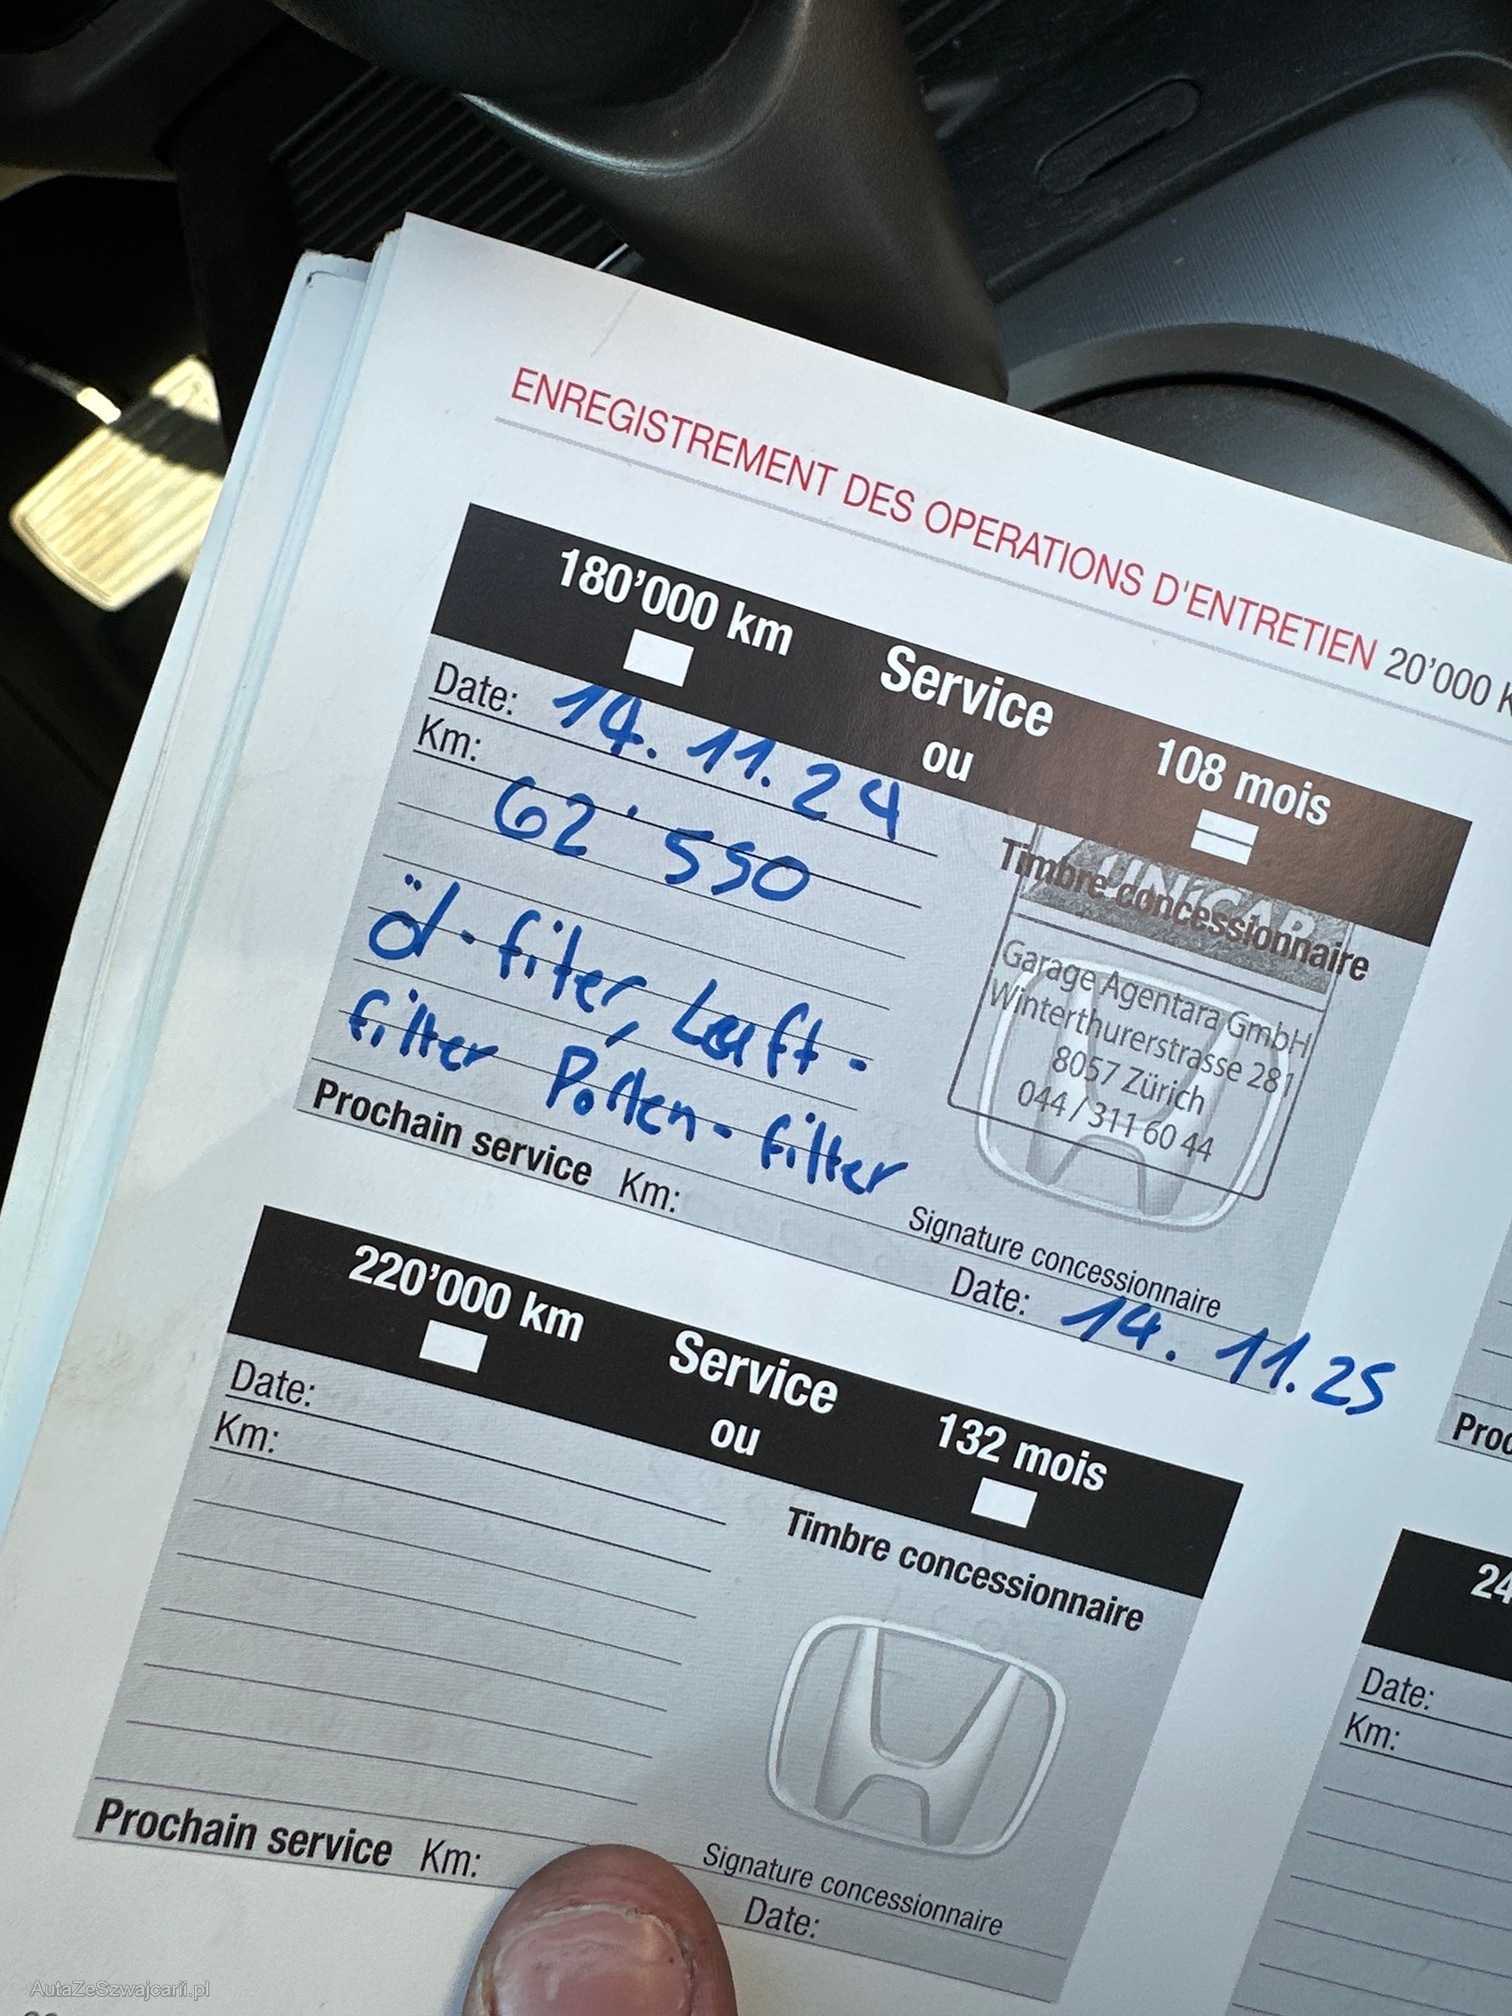 ENREGISTREMENT DES OPERATIONS D'ENTRETIEN 20'000 K
180'000 km Service ou 108 mois
Date: 14.11.24
Km: 62'550
Timbre concessionnaire
Garage Agentara GmbH
Winterthurerstrasse 281
8057 Zürich
044 / 311 60 44
öl-filter, Luft-
filter Pollen-filter
Signature concessionnaire
Prochain service Km: Date: 14.11.25
220'000 km Service ou 132 mois
Date:
Km:
Timbre concessionnaire
Signature concessionnaire
Prochain service Km: Date:
Proc
24
Date:
Km:
AutaZeSzwajcarii.pl